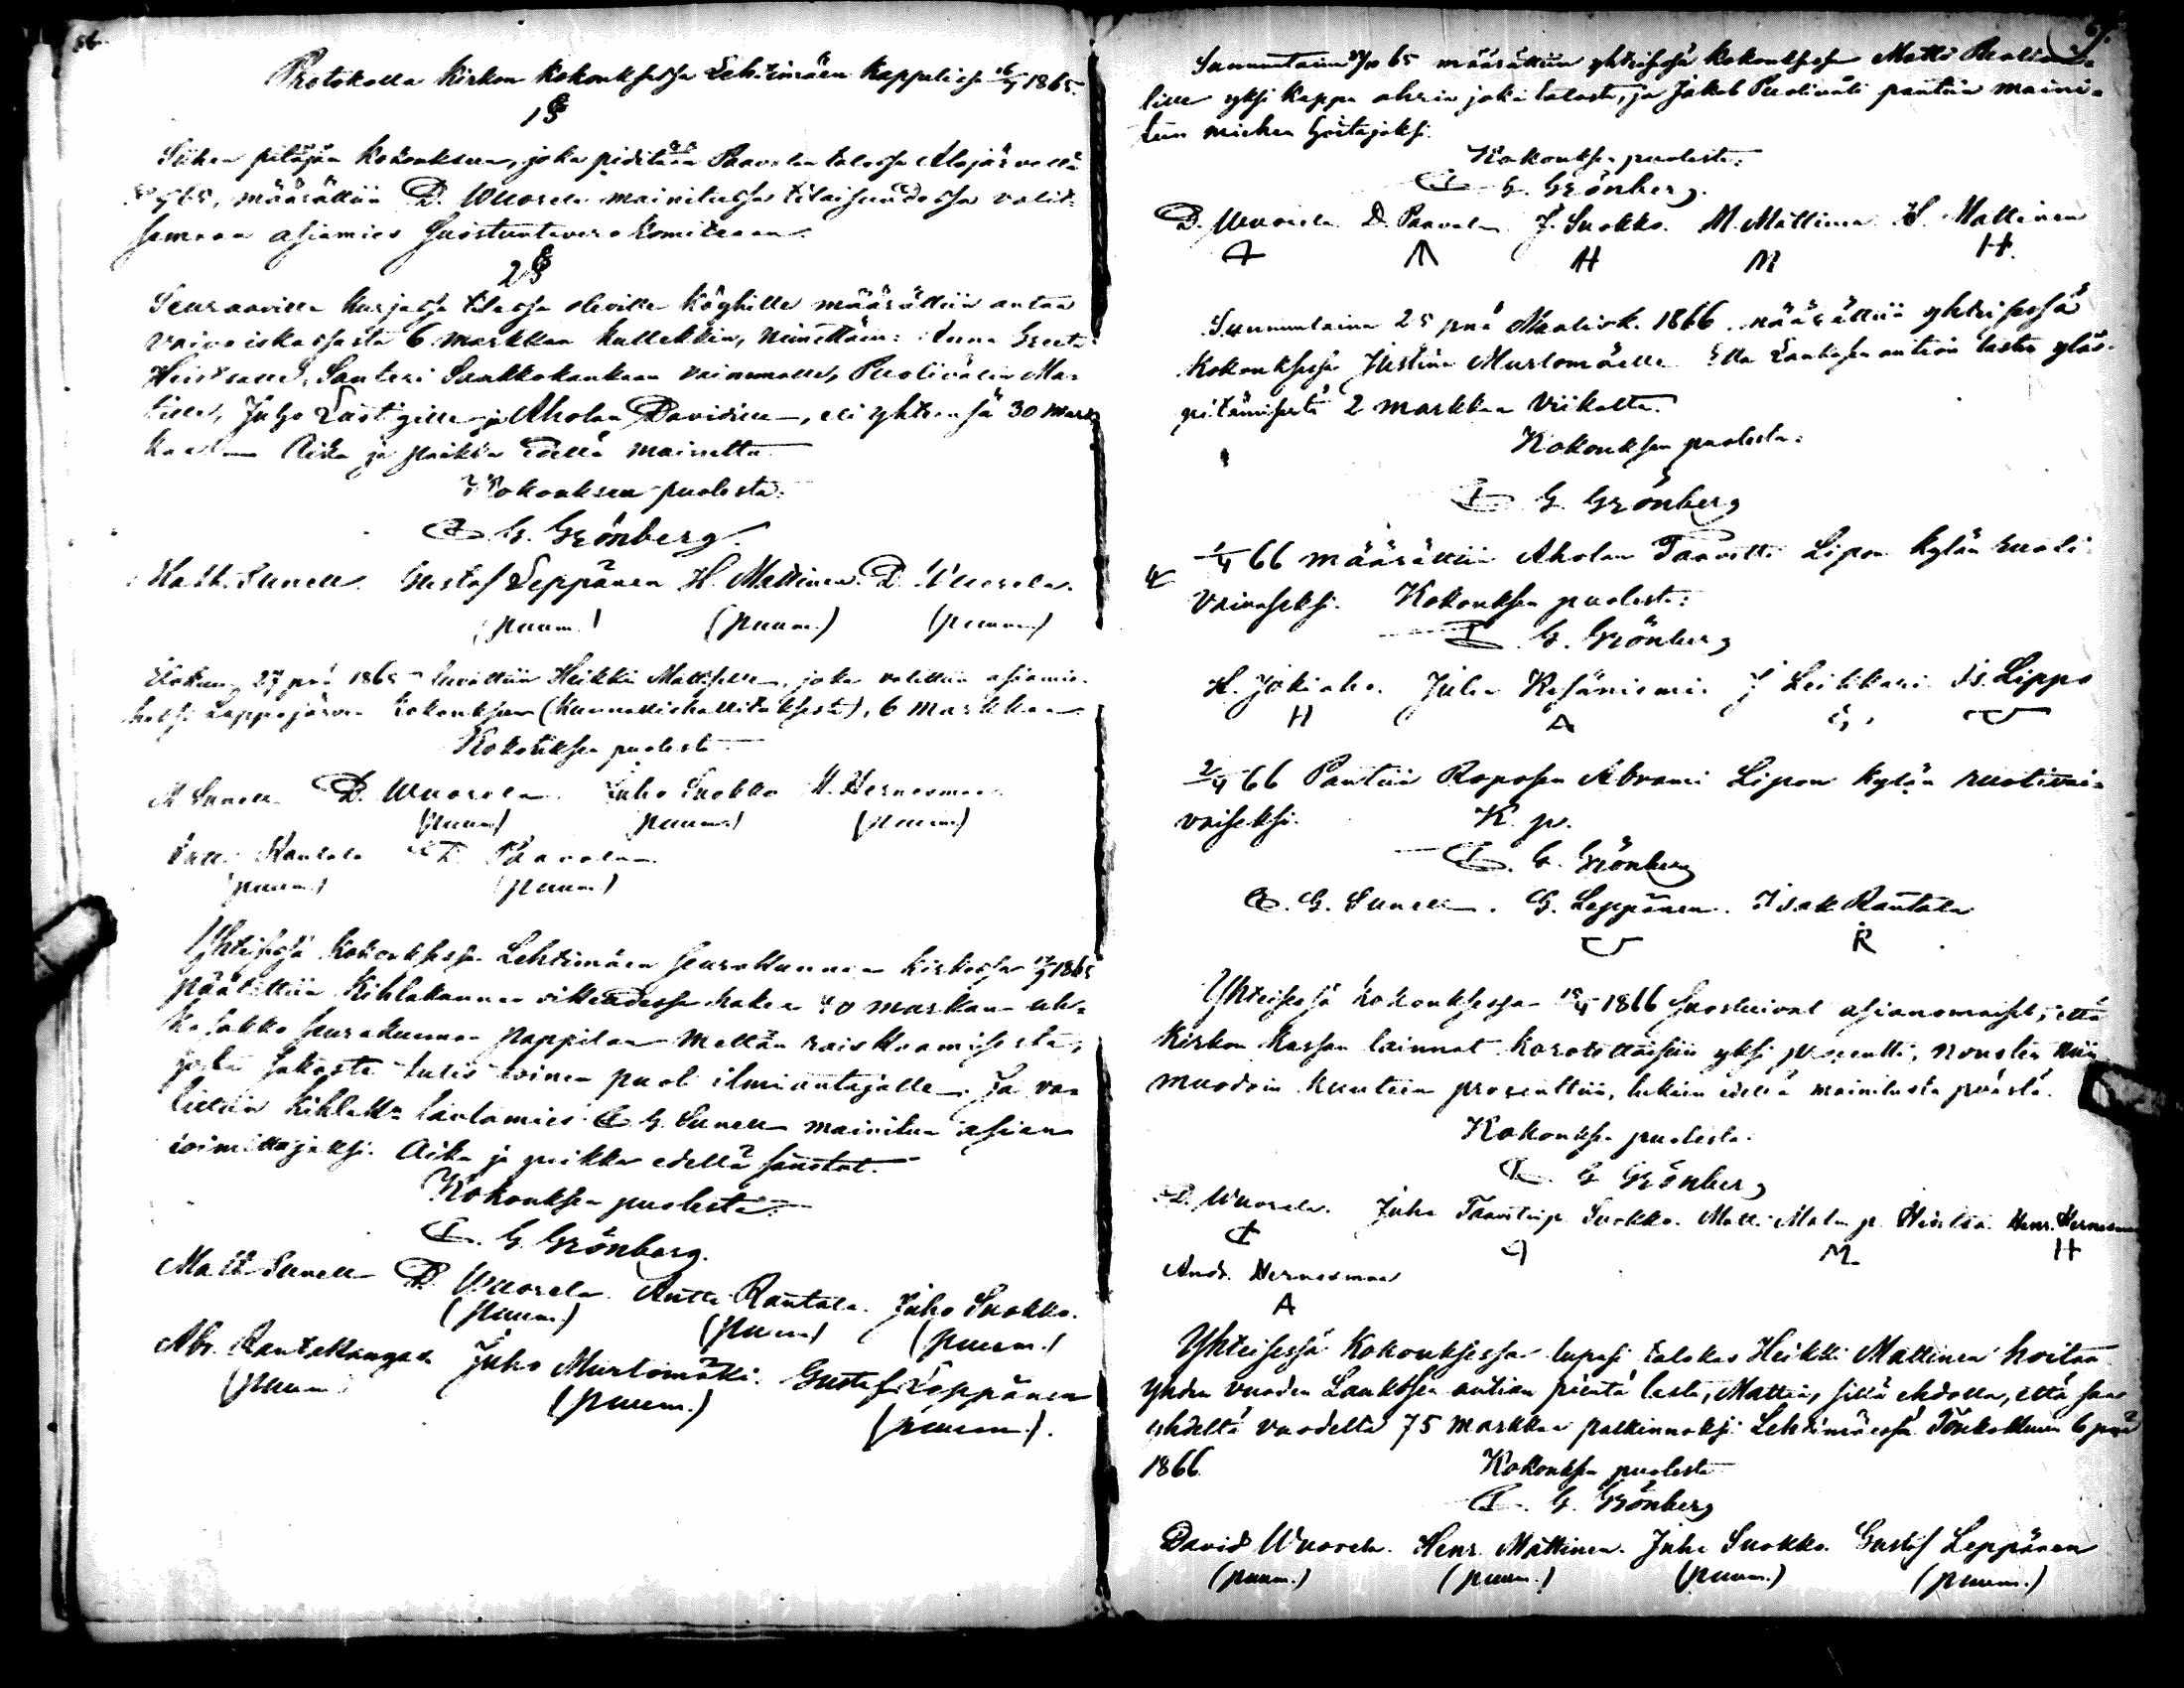 86.
Protokolla Kirkon kokouksessa Lehtimäen kappelissa 16/7 1865.
1 §
Siihen pitäjän kokouksen, joka pidetään Paavolan talossa Alajärvellä
65, määrättiin D. Wuorela mainitussa tilaisuudessa valit-
semaan asiamies Suostuntavero komiteaan.
2 §
Seuraavilla kurjassa tilassa oleville köyhille määrättiin antaa
vaivaiskassasta 6 markkaa kullekkin, nimittäin: Anna Greeta
Santeri Saukkokankaan vaimovalle, Puolivälin Ma-
tille, Juho Lustigille ja Aholan Davidille, eli yhteensä 30 mark
kaa. Aika ja paikka edellä mainittu.
Kokouksen puolesta:
C. G. Grönberg.
Math. Sunell. Gustaf Leppänen H. Mattinen. D. Wuorela.
(puum.) (puum.) (puum.)
Elokuun 27 pnä 1865 luvattiin Heikki Mattiselle, joka valittiin asiamie-
heksi Lappajärven kokoukseen (Kunnallishallituksesta), 6 markkaa
Kokouksen puolesta
M Sunell D. Wuorela. Juho Suokko M. Hernesmaa.
(puum) (puum.) (puum)
Rantala D. Paavola
(puum.) (puum.)
Yhteisessä kokouksessa Lehtimäen seurakunnan kirkossa 17/9 1865
päätettiin Kihlakunnan oikeudessa hakea 40 markan uh-
ka sakko seurakunnan pappilan mettän raiskaamisesta,
josta sakosta tulis toinen puoli ilmiantajalle. Ja va-
littiin Kihlak: lautamies C. G. Sunell mainitun asian
toimittajaksi. Aika ja paikka edellä sanotut.
Kokouksen puolesta:
C. G. Grönberg.
Matt Sunell D. Wuorela. Antti Rantala. Juho Suokko.
(puum.) (puum) (puum.)
Abr. Rantakangas Juho Murtomäki. Gustaf Leppänen
(puum. (puum.) (puum.).
87.
Sunnuntaina /10 65 määrättiin yhteisessä kokouksessa Matti Puolivä-
lille yksi kappa ohria joka talosta, ja Jakob Puoliväli pantiin maini-
tun miehen hoitajaksi.
Kokouksen puolesta:
C. G. Grönberg.
D. Wuorela. D. Paavola. J. Suokko. M. Mattinen. H. Mattinen
H M H.
Sunnuntaina 25 pnä Maalisk. 1866 määrättiin yhteisessä
kokouksessa Justina Murtomäelle Laukosen autian lasten yläs-
pitämisestä 2 markkaa viikolta.
Kokouksen puolesta:
C. G. Grönberg
1/4 66 määrättiin Aholan Taavetti Lipon kylän ruoti
vaivaseksi. Kokouksen puolesta:
C. G. Grönberg
H. Jokiaho. Juha Kesäniemi. J Leikkari. Is. Lippo
H A
2/4 66 Pantiin Roposen Abrami Lipon kylän ruotivai-
vaiseksi. K. p.
C. G. Grönberg
C. G. Sunell. G. Leppänen. Isak Rantala
R
Yhteisessä kokouksessa /4 1866 suostuivat asianomaiset, että
Kirkon kassan lainnat korotettaisiin yksi prosentti, nousten niin
muodoin kuuteen prosenttiin, lukien edellä mainitusta päästä.
Kokouksen puolesta.
C. G Grönberg
D. Wuorela. Juha Suokko. Matti Henr. Hernesmaa
M H
Andr. Hernesmaa
A
Yhteisessä Kokouksessa lupasi talokas Heikki Mattinen hoitaa
yhden vuoden Laukosen autian pientä lasta, Mattia, sillä ehdolla, että saa
yhdeltä vuodelta 75 markkaa palkinnoksi. Lehtimäessä Toukokuun 6 pnä
1866.
Kokouksen puolesta
C. G. Grönberg
David Wuorela. Henr. Mattinen. Juha Suokko. Gustaf Leppänen
(puum.) (puum.) (puum.) (puum.)